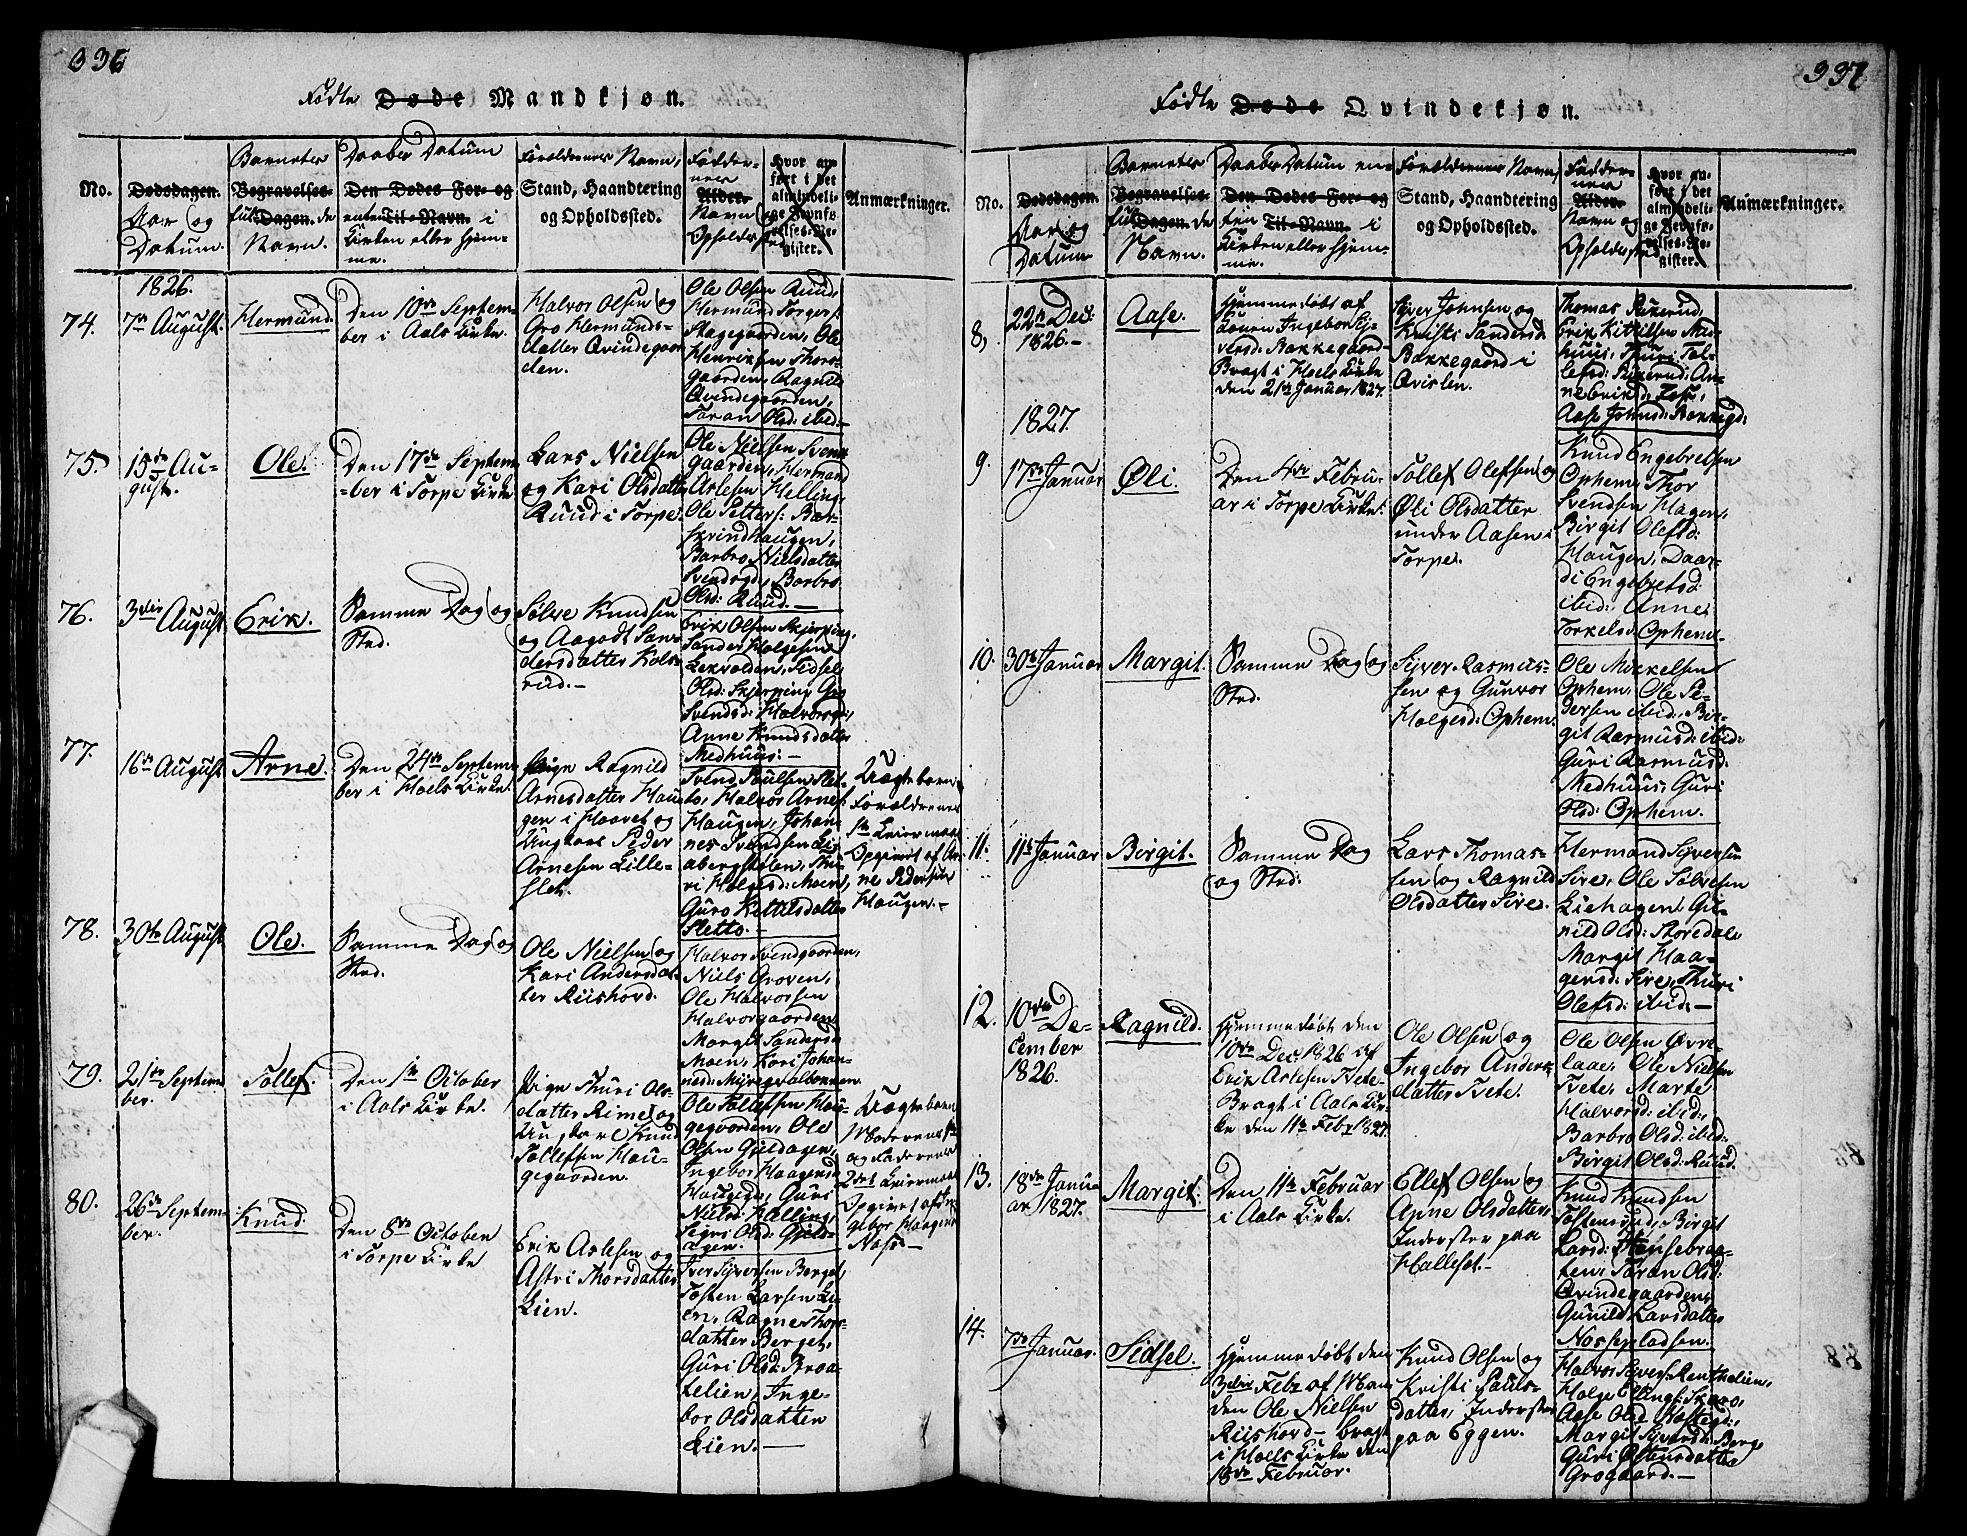 336
Fødte Døde Mandkjøn.
No.
Dødsdagen.
Aar og
Datum.
Barnetes
Begravelses-
fulde
Dagen.
Navn.
Daabes Datum
Den Dødes For- og
enten Til-Navn. i
Kirken eller Hjem-
me.
Forældrenes Navn,
Stand, Haandtering
og Opholdssted.
Fadder-
nes
Alder.
Navn og
Opholdssted
Hvor an-
ført i det
almindeli-
ge Jevnfø-
relses-Re-
gister.
Anmærkninger.
1826.
74.
7de August.
Hermund.
Den 10de Septem-
ber i Aals Kirke.
Halvor Olsen og
Gro Hermunds-
datter Qvindegaar-
den.
Ole Olsen Ruud,
Hermund Torgers:
Ole
Henriksen Thoro-
gaarden, Ragnild
Qvindegaarden,
Taran Olsd: ibid.
75.
15de Au-
gust.
Ole.
Den 17de Septem-
ber i Torpe Kirke
Lars Nielsen
og Kari Olsdatter
Ruud i Torpe.
Ole Nielsen Svend-
gaarden, Hermand
Aslesen Helling,
Ole Petters:
Barbro Nielsdatter
Svendsgd:, Barbro
Olsd: Ruud.
76.
3die August
Erik.
Samme Dag og
Sted.
Sølve Knudsen
og Aagodt San-
dersdatter Kols-
rud.
Erik Olsen Skjerping,
Sander Holgesen
Lexvolden, Sidsel
Olsd: Skjerping, Gro
Svendsd: Halvorsgd:,
Anne Knudsdatter
Medhuus.
77.
16de August
Arne.
Den 24de Septem-
ber i Hoels Kirke.
Pige Ragnild
Arnesdatter Hau-
gen i Haavet og
Ungkarl Peder
Arnesen Lille-
slet.
Svend Poulsen Slet-
to, Halvor Arnes:
Haugen, Johan-
nes Svendsen Li-
abergstølen, Thu-
ri Holgesd: Moen,
Guro Kettilsdatter
Sletto.
Uægte barn
Forældrenes
1ste Leiermaal
Opgivet af Ar-
ne Pedersen
Haugen.
78.
30te August
Ole.
Samme Dag og
Sted.
Ole Nielsen og
Kari Andersdat-
ter Riishovd.
Halvor Svendgaarden,
Niels Groven,
Ole Halvorsen
Halvorgaarden
Margit Sandersd:
Moen, Kari Johan-
nesd:
79.
21de Septem-
ber.
Tollef.
Den 1ste October
i Aals Kirke.
Pige Thuri Ols-
datter Rime og
Ungkarl Knud
Tollefsen Hau-
gegaarden.
Ole Tollefsen Hau-
gegaarden, Ole
Olsen Gjeldagen,
Ingebor Haagensd:
Haugegd:, Guri
Nielsd: Helling,
Sigri Olsd: Gjeld-
agen.
Uægte barn
Moderens 1ste
og Faderens
2det Leiermaal
Opgivet af In-
gebor Haagensd:
Noss.
80.
26de Septem-
ber.
Knud.
Den 8de October
i Torpe Kirke
Erik Aslesen og
Astri Thorsdatter
Lien.
Iver Syversen Berget,
Tosten Larsen Li-
en, Ragne Thors-
datter Berget,
Guri Olsd: Braa-
telien, Inge-
bor Olsdatter
Lien.
337
Fødte Døde Qvindekjøn.
No.
Dødsdagen.
Aar og
Datum
Barnetes
Begravelses-
fulde
Dagen.
Navn.
Daabes Datum en-
Den Dødes For- og
ten Til-Navn. i
Kirken eller Hjem-
me.
Forældrenes Navn,
Stand, Haandtering
og Opholdssted.
Fadder-
nes
Alder.
Navn og
Opholdssted
Hvor an-
ført i det
almindeli-
ge Jevnfø-
relses-Re-
gister.
Anmærkninger.
8,
22de Dec:
1826.
Aase.
Hjemmedøbt af
Konen Ingebor Sy-
versd: Bakkegaard
Bragt i Hoels Kirke
den 21de Januar 1827.
Syver Johnsen og
Kristi Sandersd:
Bakkegaard i
Qvislen.
Thomas Rikerud,
Erik Kittilsen Med-
huus, Thuri Tol-
lefsd: Rikerud, An-
ne Eriksd:
Aase Johnsd: Bakkegd:
1827.
9.
17de Januar
Øli.
Den 4de Febru-
ar i Torpe Kirke.
Tollef Olefsen og
Øli Olsdatter
under Aasen i
Torpe.
Knud Engebretsen
Ophem, Thor
Svendsen Hagen,
Birgit Olefsd:
Haugen, Daar-
di Engebretsd:
ibid: Anne
Torkelsd: Ophem.
10.
30te Januar
Margit.
Samme Dag og
Sted.
Syver Rasmus-
sen og Gunvor
Holgesd: Ophem.
Ole Mikkelsen
Ophem, Ole Pe-
dersen ibid:, Bir-
git Rasmusd: ibid:
Guri Rasmusd:
Medhuus, Guri
Olsd: Ophem.
11.
11te Januar
Birgit.
Samme Dag
og Sted.
Lars Thomas-
sen og Ragnild
Olsdatter Sire.
Hermand Syversen
Sire, Ole Sølvesen
Liehagen, Gu-
nild Olsd: Storedale
Margit Haa-
gensd: Sire, Thuri
Olefsd: ibid:
12.
10de De-
cember
1826.
Ragnild.
Hjemmedøbt den
10de Dec: 1826 af
Erik Aslesen Tvete
Bragt i Aals Kir-
ke den 11te Febr 1827.
Ole Olsen og
Ingebor Anders-
datter Tvete.
Ole Olsen Øvre-
laae, Ole Nielsen
Tvete, Marte
Halvorsd: ibid:,
Barbro Olsd: ibid:
Birgit Olsd: Ruud.
13.
18de Janu-
ar 1827.
Margit.
Den 11te Februar
i Aals Kirke.
Ellef Olsen og
Anne Olsdatter,
Inderster paa
Halleset.
Knud Knudsen
Tostensrud, Birgit
Larsd:
Taran Olsd:
Qvindegaarden,
Gunild Larsdatter
Nossepladsen.
14.
7de Januar.
Sidsel.
Hjemmedøbt den
3die Febr af Man-
den Ole Nielsen
Riishovd – bragt
i Hoels Kirke den
18de Februar.
Knud Olsen og
Kristi Pauls-
datter, Inderster
paa Eggen.
Halvor Syvers:
Holge Ellingsen
Aase Olsd
Margit Syversd: Berg
Guri Østensdatter
Grøgaard.